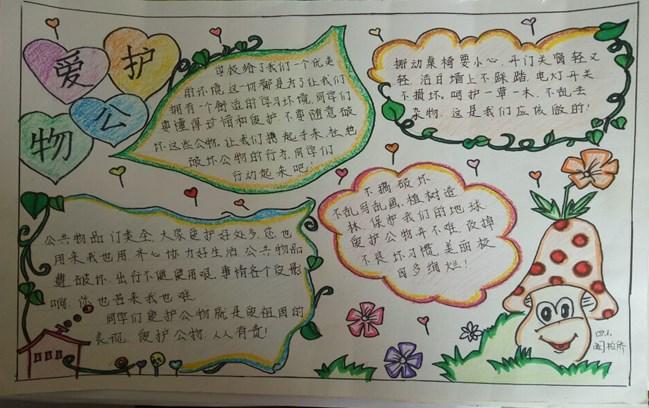 爱护
公
物
学校给了我们一个优美
的环境,这一切都是为了让我们
拥有一个舒适的学习环境,同学们
要懂得珍惜和爱护,不要随意破
坏这些公物,让我们携起手来,杜绝
破坏公物的行为,同学们
行动起来吧!
搬动桌椅要小心,开门关窗轻又
轻,洁白墙上不踩踏,电灯开关
不损坏,呵护一草一木,不乱丢
杂物,这是我们应该做的!
公共物品门类全,大家爱护好处多,您也
用来我也用,齐心协力好生活,公共物品
遭破坏,出行不便受用艰,事情各个没形
啊,你也苦来我也难
同学们爱护公物就是爱祖国的
表现,爱护公物,人人有责!
不搞破坏
不乱写乱画,植树造
林,保护我们的地球
爱护公物并不难,改掉
不良坏习惯,美丽校
园多绚烂!
四.1.